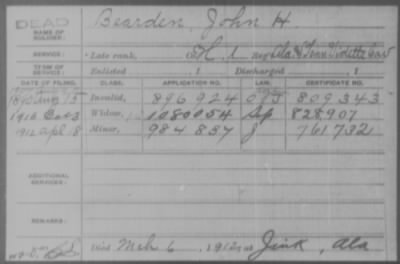 DEAD
NAME OF SOLDIER: Bearden, John H.
SERVICE: Late rank, Co. H, 1 Reg Ala & Tenn Vidette Cav
TERM OF SERVICE: Enlisted , 1 Discharged , 1
DATE OF FILING. CLASS. APPLICATION NO. LAW. CERTIFICATE NO.
1890 Aug 15 Invalid, 896924 809343
1916 Widow, 1080054 828907
1912 Apl. 8 Minor, 984837 J 761732
ADDITIONAL SERVICES:
REMARKS:
Died Mch 6, 1912, at Zink, Ala